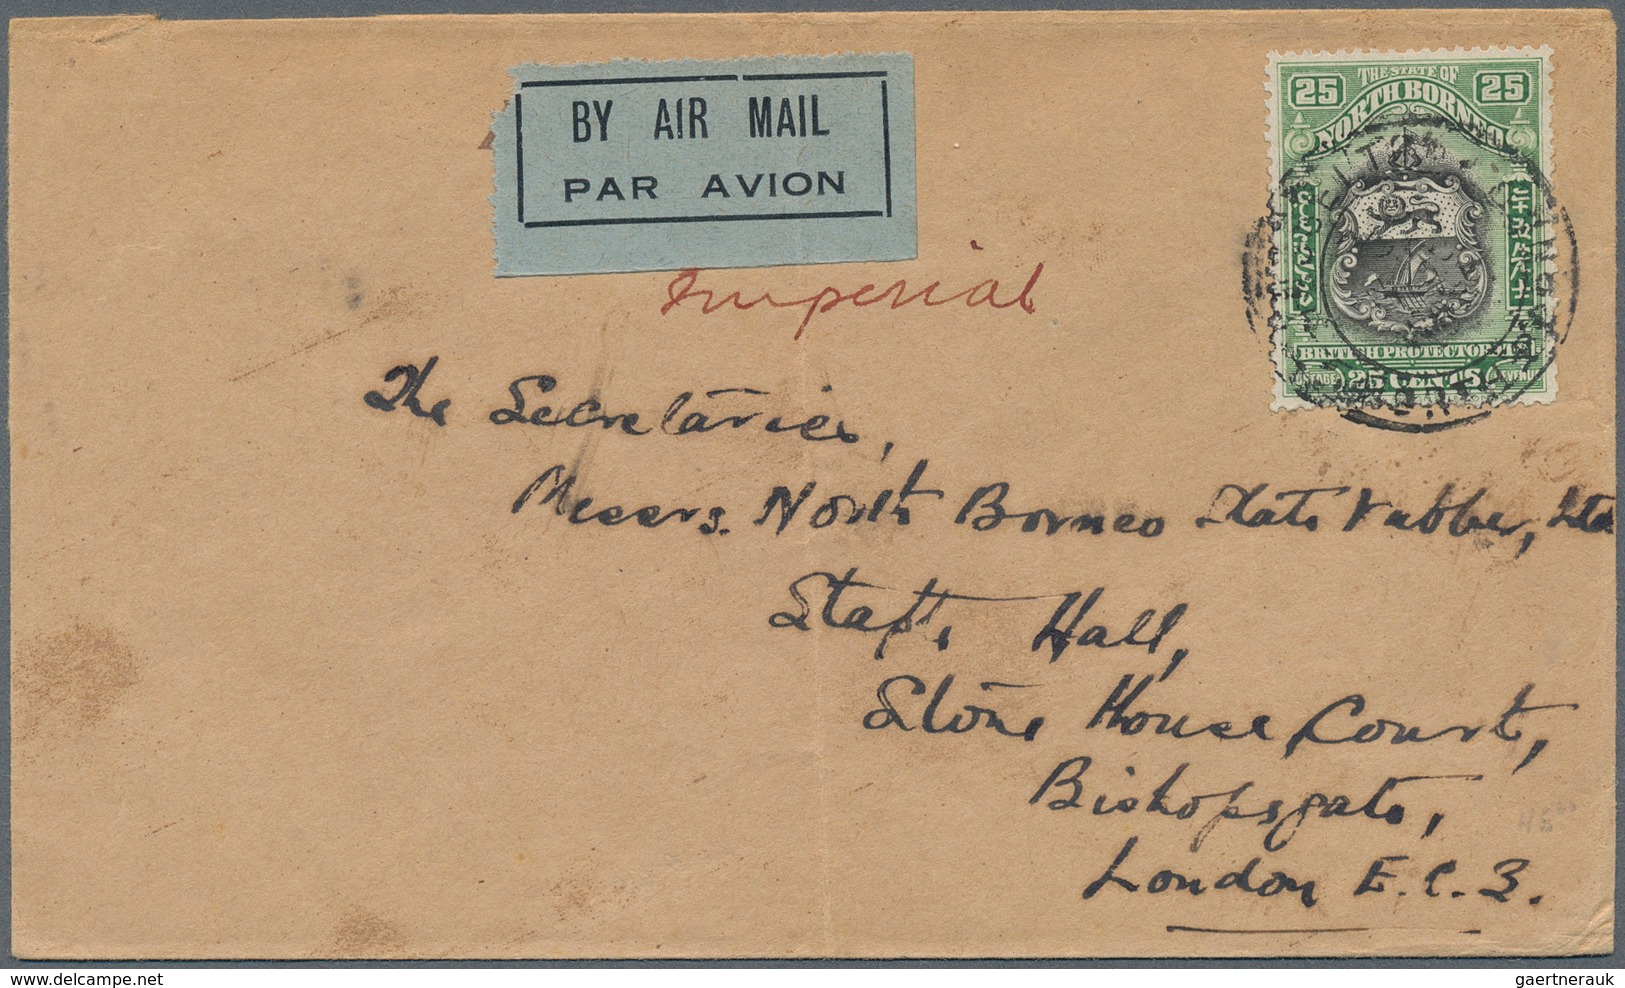 BY AIR MAIL
PAR AVION
25 THE STATE OF 25
NORTH BORNEO
BRITISH PROTECTORATE
POSTAGE 25 CENTS REVENUE
Imperial
The Secretaries,
Messrs. North Borneo State Rubber, Ltd
Staple Hall,
Stone House Court,
Bishopsgate,
London E.C.3.
delcampe.net
gaertnerauk